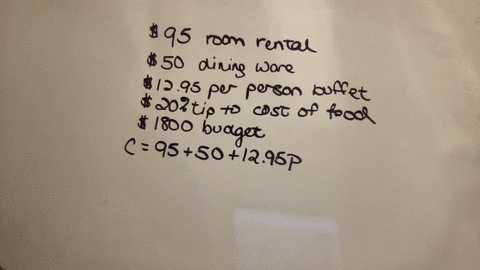 $95 room rental
$50 dining ware
$12.95 per person buffet
$20% tip to cost of food
$1800 budget
C = 95 + 50 + 12.95p